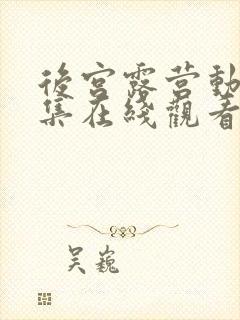 後宮露营動
集在綫觀看
吴巍